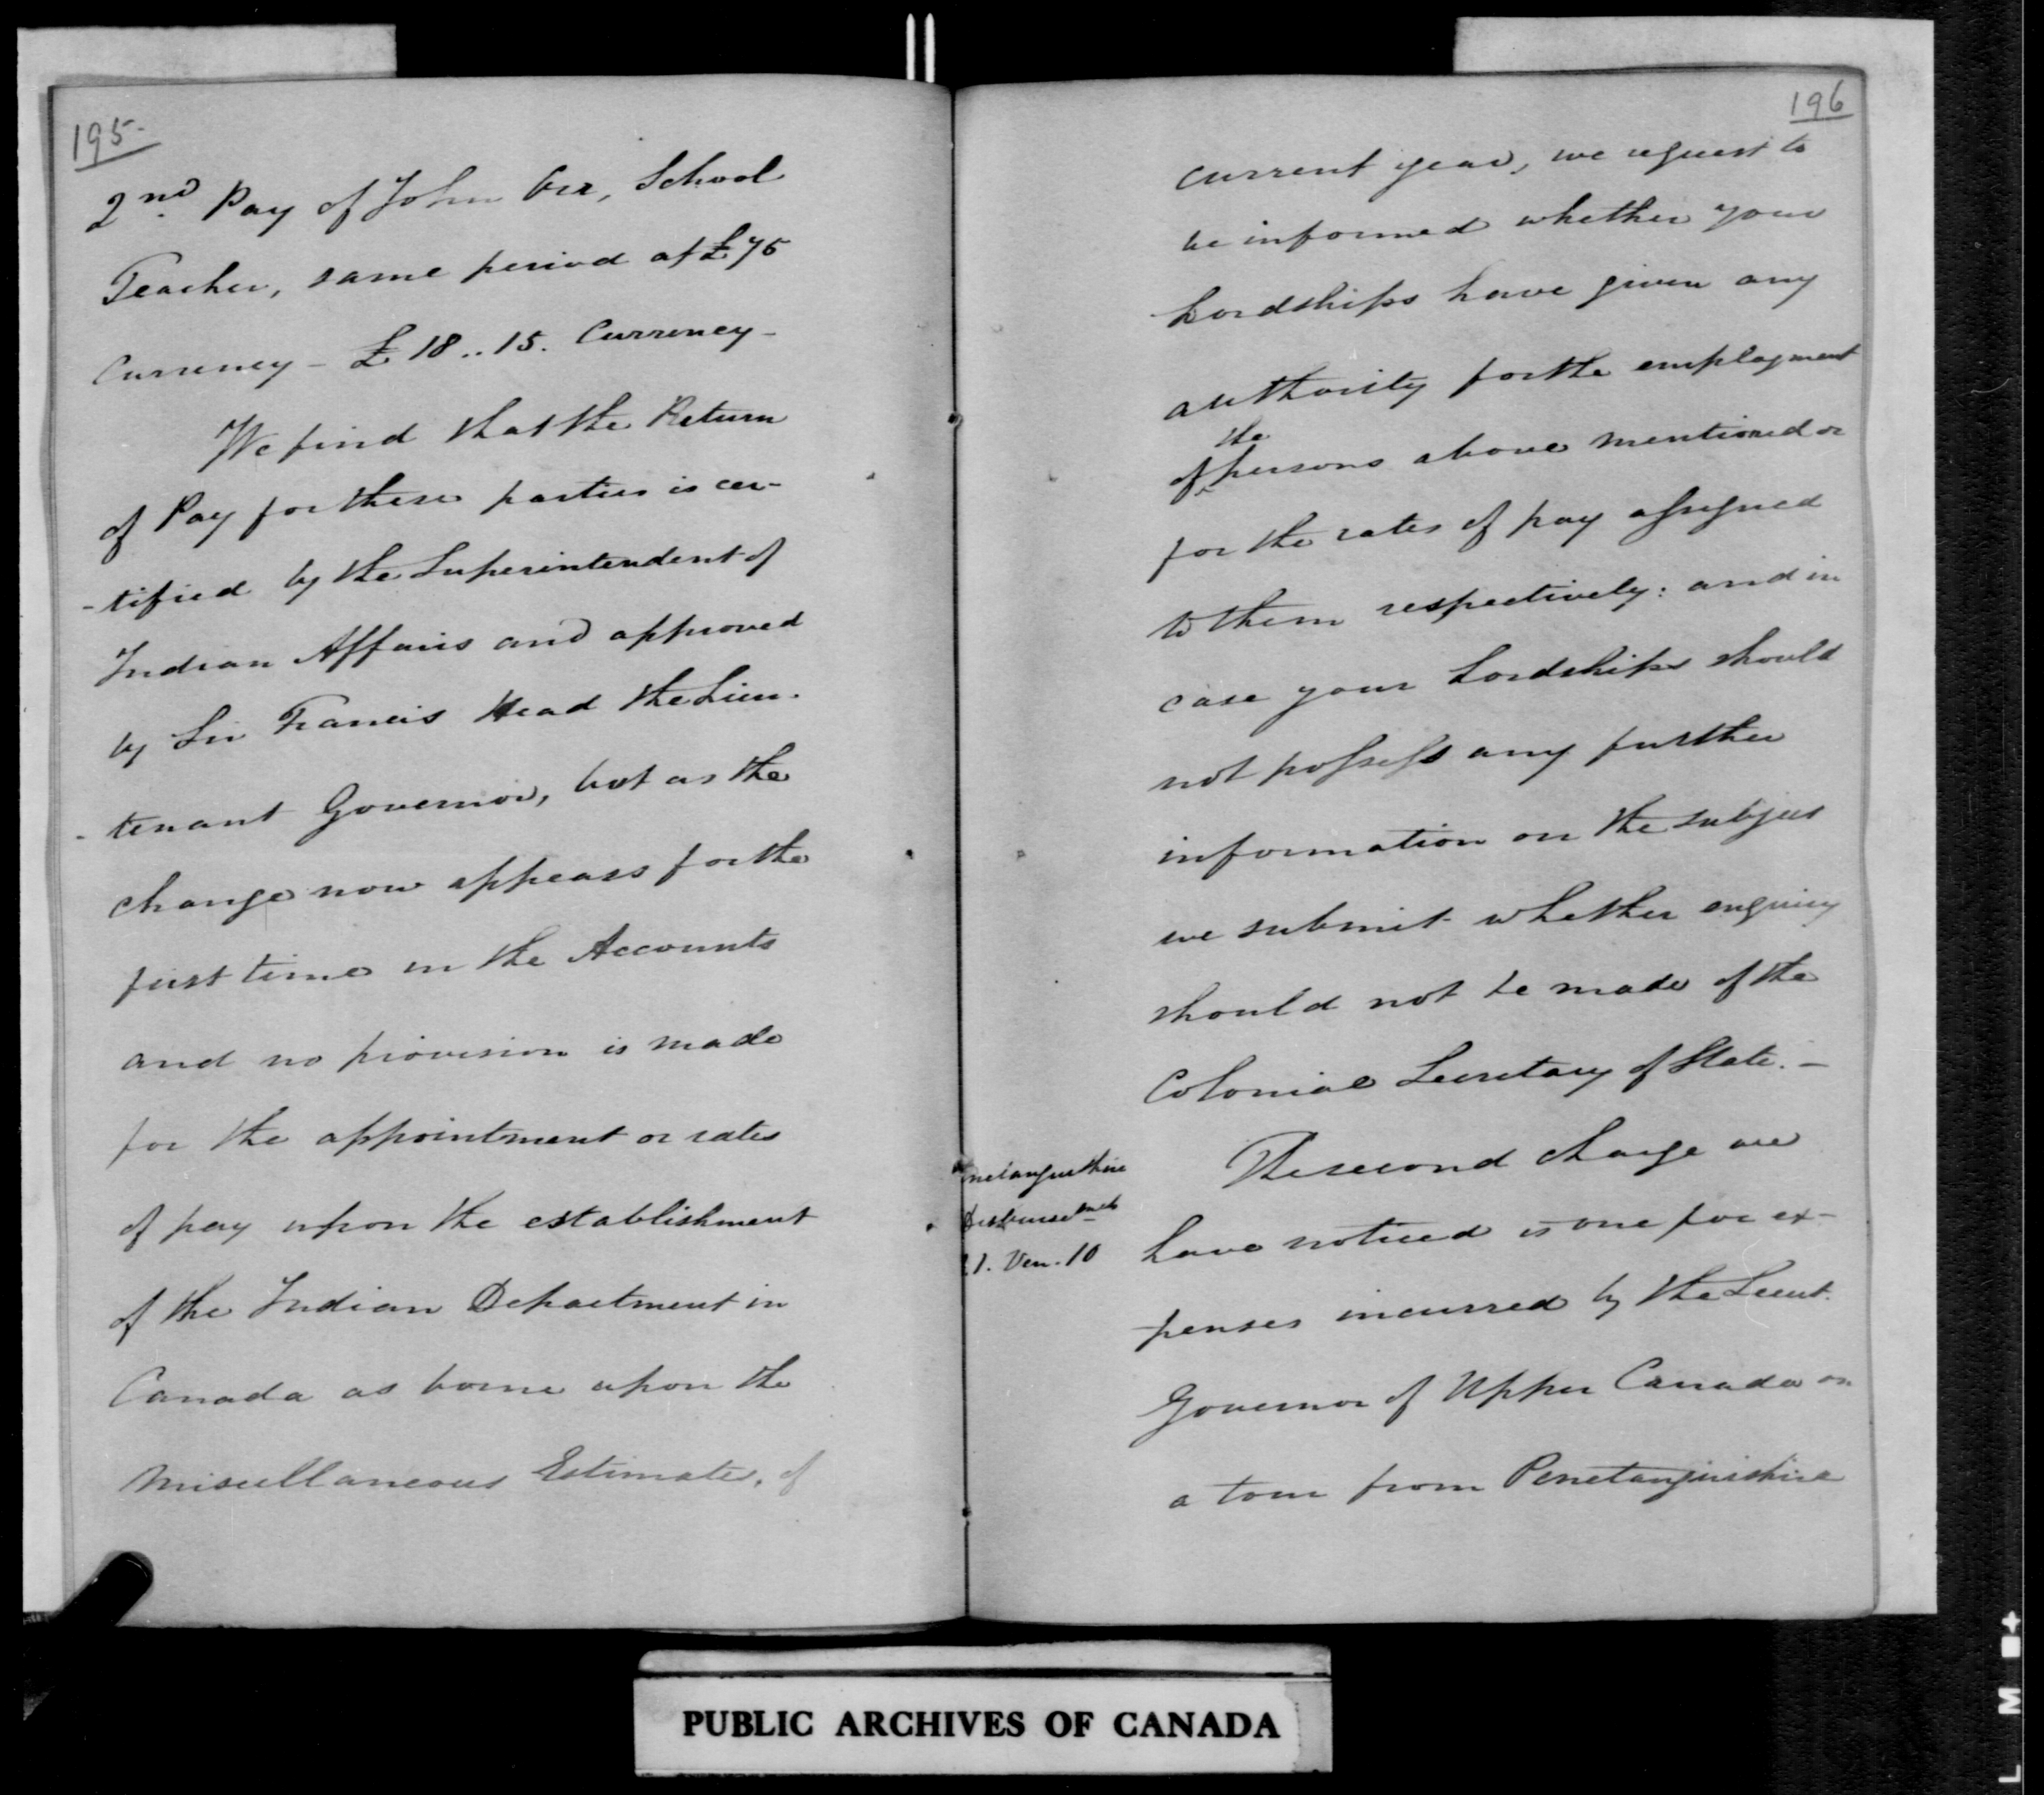 195.
2nd. Pay of John Orr, School
Teacher, same period at £75
Currency - £18..15. Currency -
We find that the Return
of Pay for these parties is cer-
-tified by the Superintendent of
Indian Affairs and approved
by Sir Francis Head the Lieu-
-tenant Governor, but as the
charge now appears for the
first time in the Accounts
and no provision is made
for the appointment or rates
of pay upon the establishment
of the Indian Department in
Canada as borne upon the
Miscellaneous Estimates, of
196
current year, we request to
be informed whether your
Lordships have given any
authority for the employment
of the persons above mentioned or
for the rates of pay assigned
to them respectively: and in
case your Lordships should
not possess any further
information on the subject
we submit whether enquiry
should not be made of the
Colonial Secretary of State. -
The second charge we
have noticed is one for ex-
penses incurred by the Lieut.
Governor of Upper Canada on
a tour from Penetanguishine
netanguishine
Disbursements
1. Vou. 10
PUBLIC ARCHIVES OF CANADA
L M